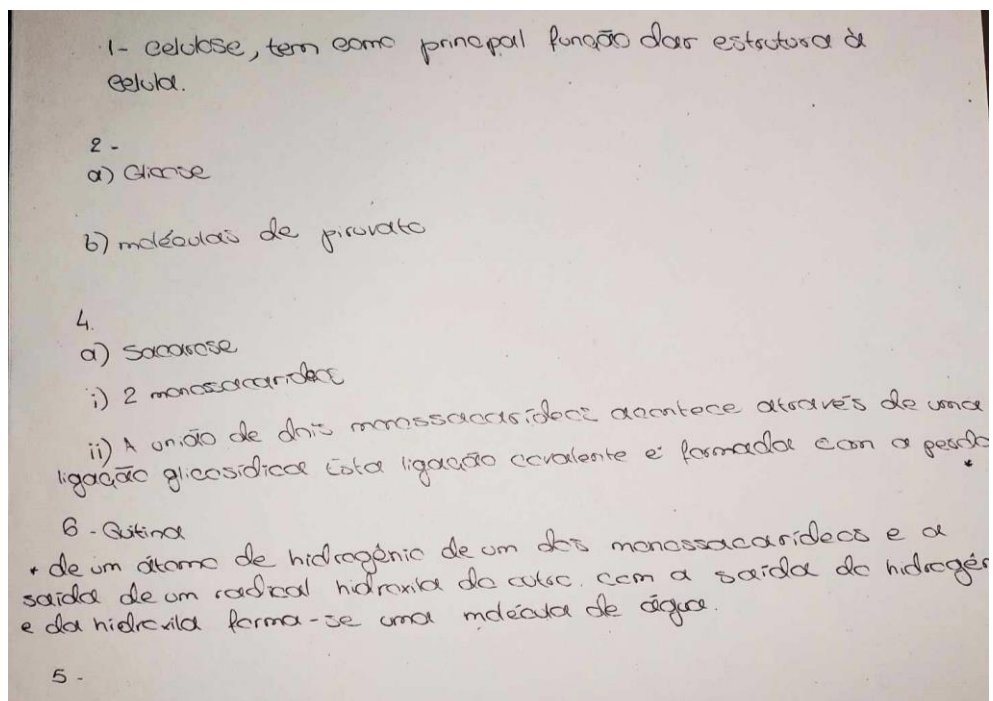 1- celulose, tem como principal função dar estrutura à
celula.
2 -
a) Glicose
b) moléculas de piruvato
4.
a) Sacarose
i) 2 monossacarideos
ii) A união de dois monossacarídeos acontece através de uma
ligação glicosídica Esta ligação covalente e formada com a perda
*
6 - Quitina
* de um átomo de hidrogénio de um dos monossacarídeos e a
saída de um radical hidroxila do outro. com a saída do hidrogén
e da hidroxila forma-se uma molécula de água.
5 -